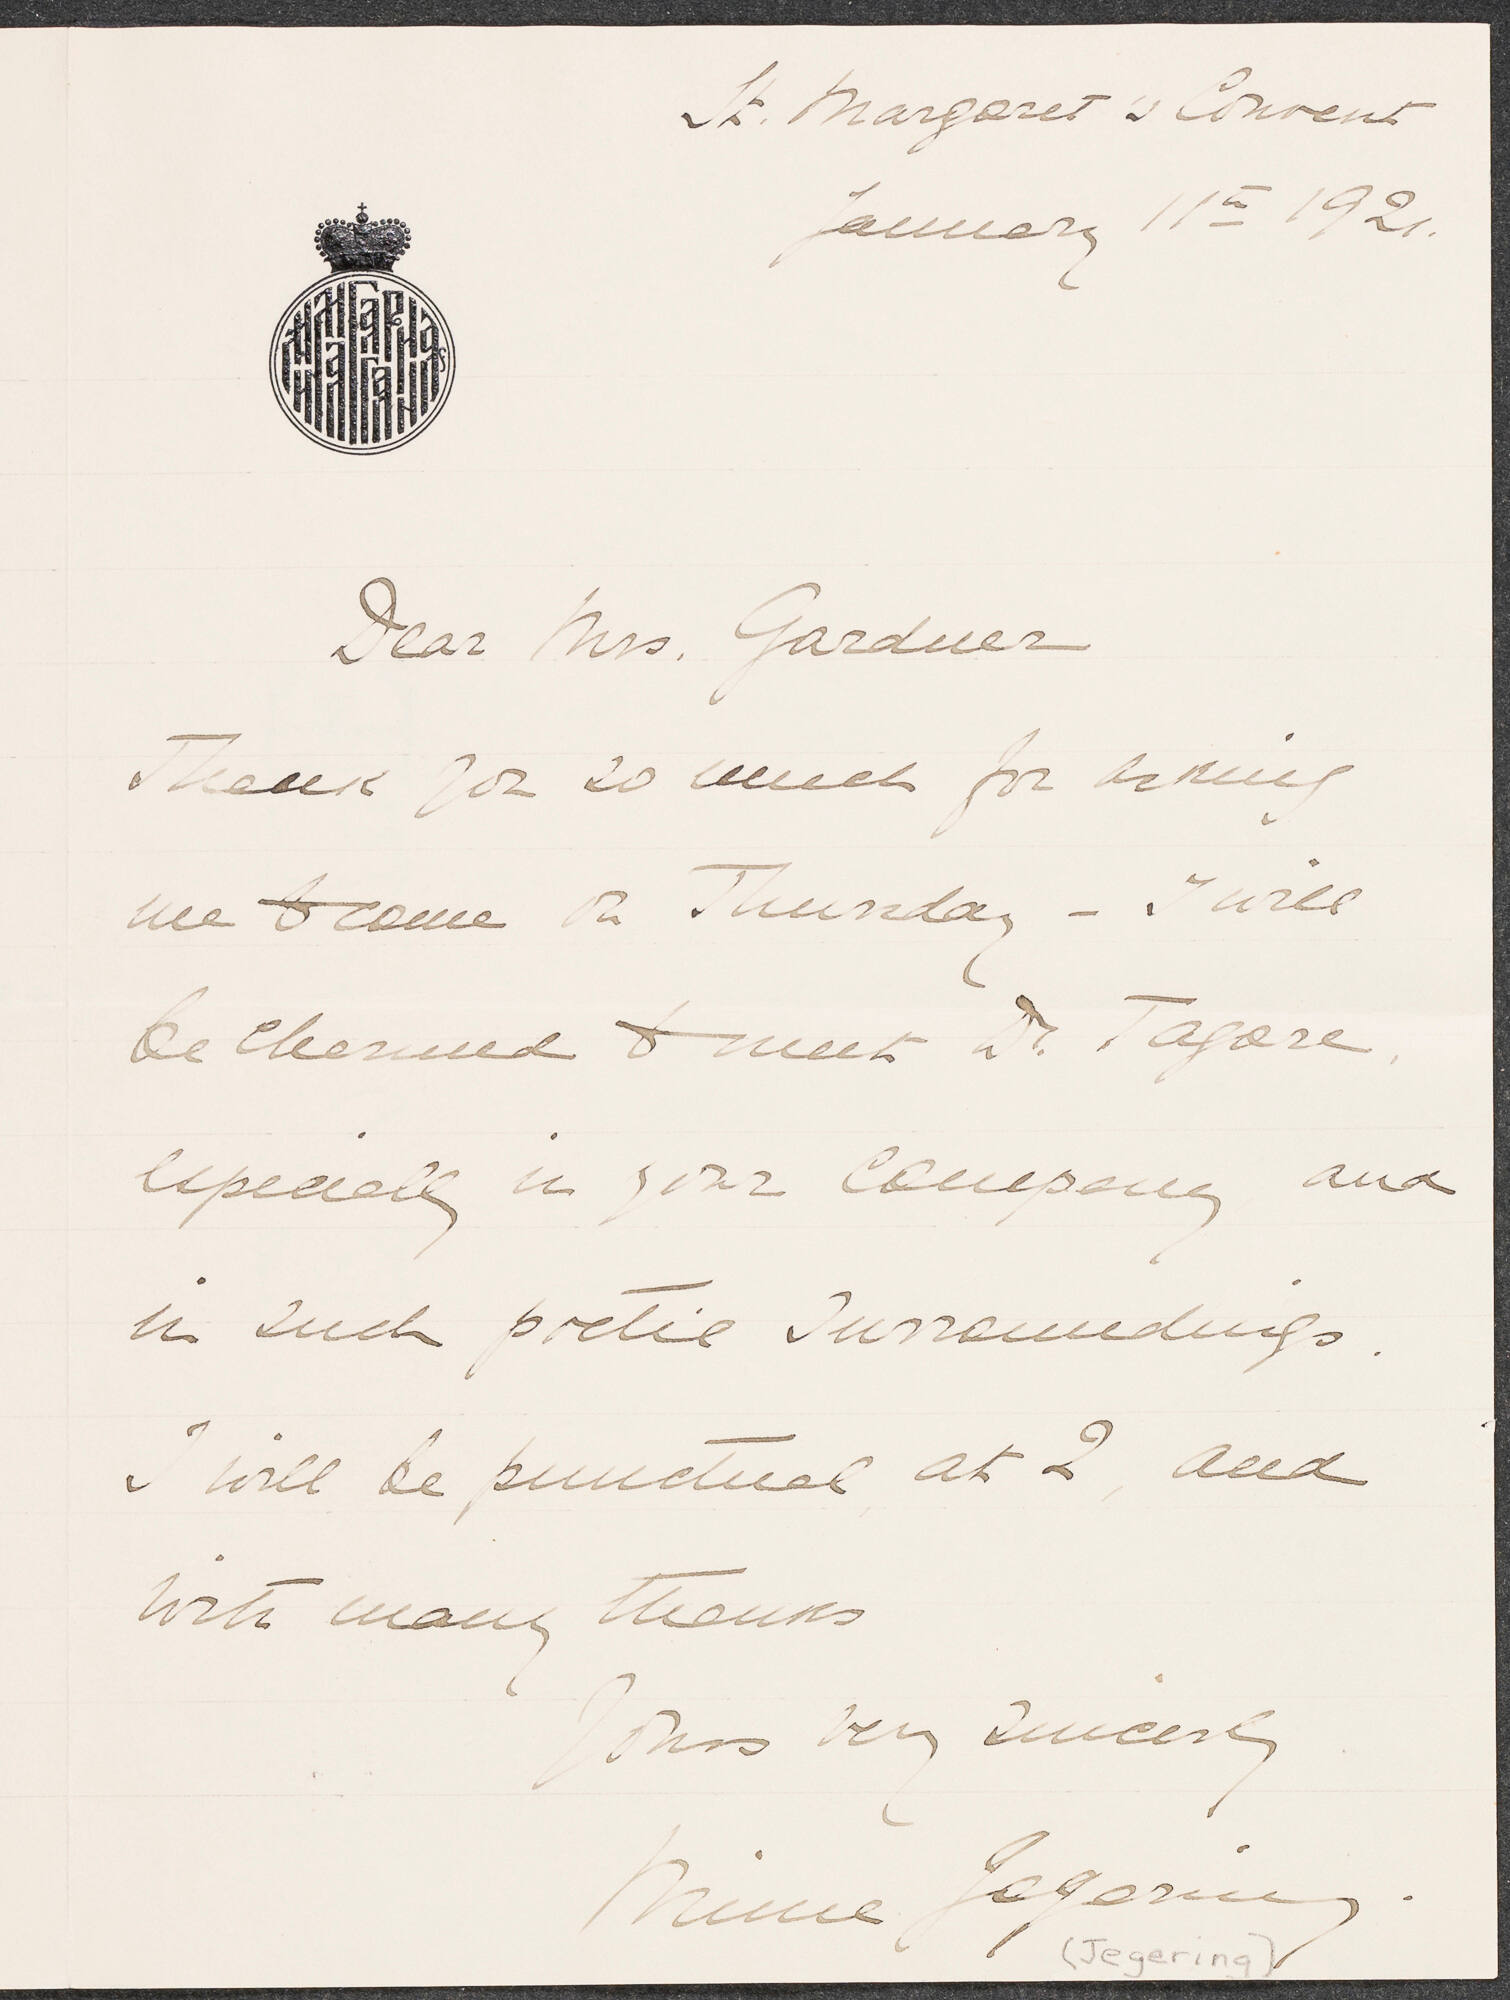 St. Margaret's Convent
January 11th 1921.
Dear Mrs. Gardner
Thank you so much for asking
me to come on Thursday - I will
be charmed to meet Dr. Tagore,
especially in your company, and
in such poetic surroundings.
I will be punctual, at 2, and
with many thanks
Yours very sincerly
Minne Jegering.
(Jegering)